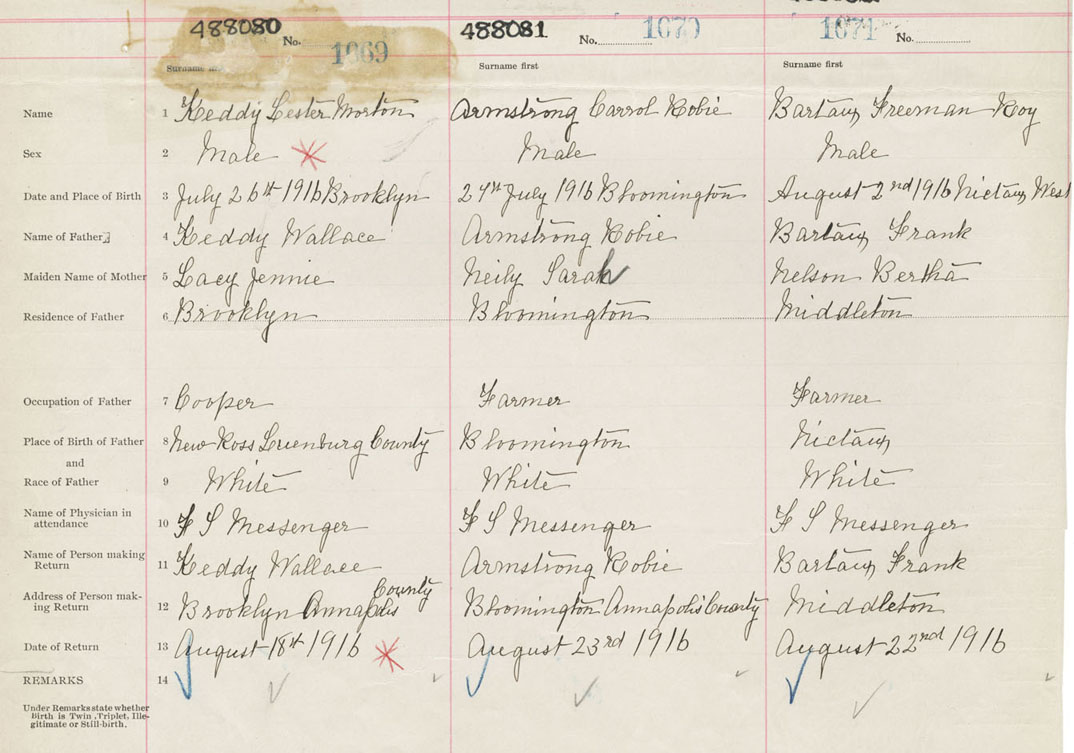 488080 No. 1669 488081 No. 1670 1671 No.
Surname Surname first Surname first
Name 1 Keddy Lester Morton Armstrong Carrol Robie Bartaux Freeman Roy
Sex 2 Male Male Male
Date and Place of Birth 3 July 26th 1916 Brooklyn 27th July 1916 Bloomington August 2nd 1916 Nictaux West
Name of Father 4 Keddy Wallace Armstrong Robie Bartaux Frank
Maiden Name of Mother 5 Lacy Jennie Neily Sarah Nelson Bertha
Residence of Father 6 Brooklyn Bloomington Middleton
Occupation of Father 7 Cooper Farmer Farmer
Place of Birth of Father 8 New Ross Luenburg County Bloomington Nictaux
and
Race of Father 9 White White White
Name of Physician in
attendance 10 F S Messenger F S Messenger F S Messenger
Name of Person making
Return 11 Keddy Wallace Armstrong Robie Bartaux Frank
Address of Person mak-
ing Return 12 Brooklyn Annapolis County Bloomington Annapolis County Middleton
Date of Return 13 August 18th 1916 August 23rd 1916 August 22nd 1916
REMARKS 14
Under Remarks state whether
Birth is Twin, Triplet, Ille-
gitimate or Still-birth.